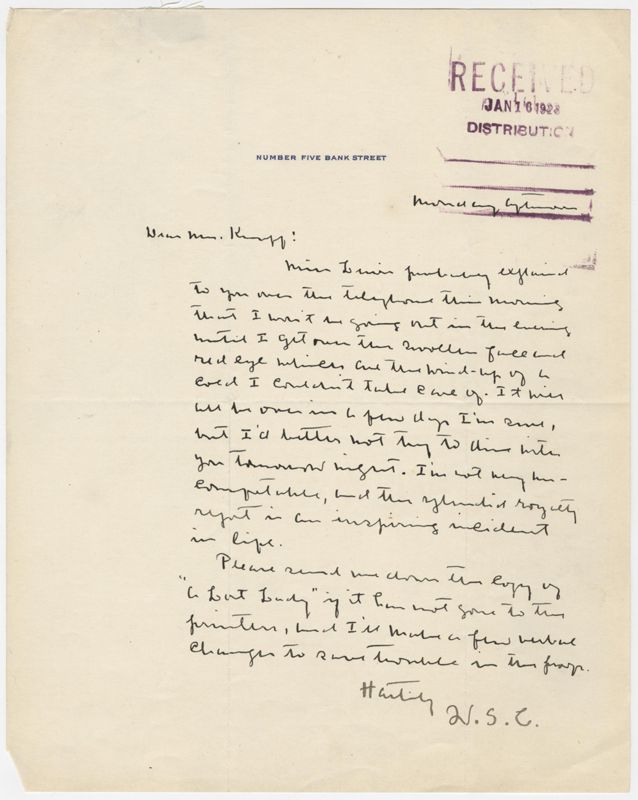 RECEIVED
JAN 16 1923
DISTRIBUTION
NUMBER FIVE BANK STREET
Monday afternoon
Dear Mr. Knopf:
Miss Lewis probably explained
to you over the telephone this morning
that I won't be going out in the evening
until I get over the swollen face and
red eye which are the wind-up of a
cold I couldn't take care of. It will
all be over in a few days I'm sure,
but I'd better not try to dine with
you tomorrow night. I'm not very un-
comfortable, and the splendid royalty
report is an inspiring incident
in life.
Please send me down the copy of
"A Lost Lady" if it has not gone to the
printers, and I'll make a few verbal
changes to save trouble in the proof.
Heartily
W. S. C.